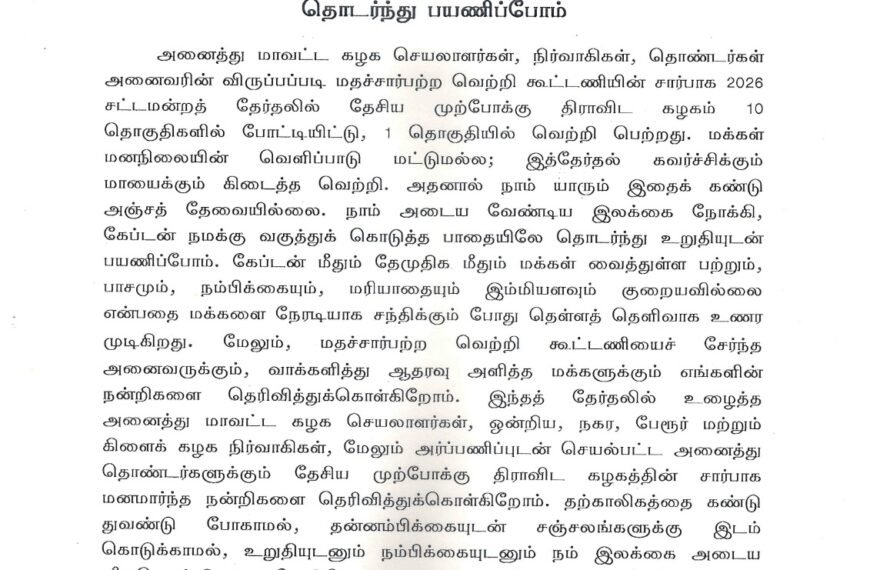 தொடர்ந்து பயணிப்போம்
அனைத்து மாவட்ட கழக செயலாளர்கள், நிர்வாகிகள், தொண்டர்கள்
அனைவரின் விருப்பப்படி மதச்சார்பற்ற வெற்றி கூட்டணியின் சார்பாக 2026
சட்டமன்றத் தேர்தலில் தேசிய முற்போக்கு திராவிட கழகம் 10
தொகுதிகளில் போட்டியிட்டு, 1 தொகுதியில் வெற்றி பெற்றது. மக்கள்
மனநிலையின் வெளிப்பாடு மட்டுமல்ல; இத்தேர்தல் கவர்ச்சிக்கும்
மாயைக்கும் கிடைத்த வெற்றி. அதனால் நாம் யாரும் இதைக் கண்டு
அஞ்சத் தேவையில்லை. நாம் அடைய வேண்டிய இலக்கை நோக்கி,
கேப்டன் நமக்கு வகுத்துக் கொடுத்த பாதையிலே தொடர்ந்து உறுதியுடன்
பயணிப்போம். கேப்டன் மீதும் தேமுதிக மீதும் மக்கள் வைத்துள்ள பற்றும்,
பாசமும், நம்பிக்கையும், மரியாதையும் இம்மியளவும் குறையவில்லை
என்பதை மக்களை நேரடியாக சந்திக்கும் போது தெள்ளத் தெளிவாக உணர
முடிகிறது. மேலும், மதச்சார்பற்ற வெற்றி கூட்டணியைச் சேர்ந்த
அனைவருக்கும், வாக்களித்து ஆதரவு அளித்த மக்களுக்கும் எங்களின்
நன்றிகளை தெரிவித்துக்கொள்கிறோம். இந்தத் தேர்தலில் உழைத்த
அனைத்து மாவட்ட கழக செயலாளர்கள், ஒன்றிய, நகர, பேரூர் மற்றும்
கிளைக் கழக நிர்வாகிகள், மேலும் அர்ப்பணிப்புடன் செயல்பட்ட அனைத்து
தொண்டர்களுக்கும் தேசிய முற்போக்கு திராவிட கழகத்தின் சார்பாக
மனமார்ந்த நன்றிகளை தெரிவித்துக்கொள்கிறோம். தற்காலிகத்தை கண்டு
துவண்டு போகாமல், தன்னம்பிக்கையுடன் சஞ்சலங்களுக்கு இடம்
கொடுக்காமல், உறுதியுடனும் நம்பிக்கையுடனும் நம் இலக்கை அடைய